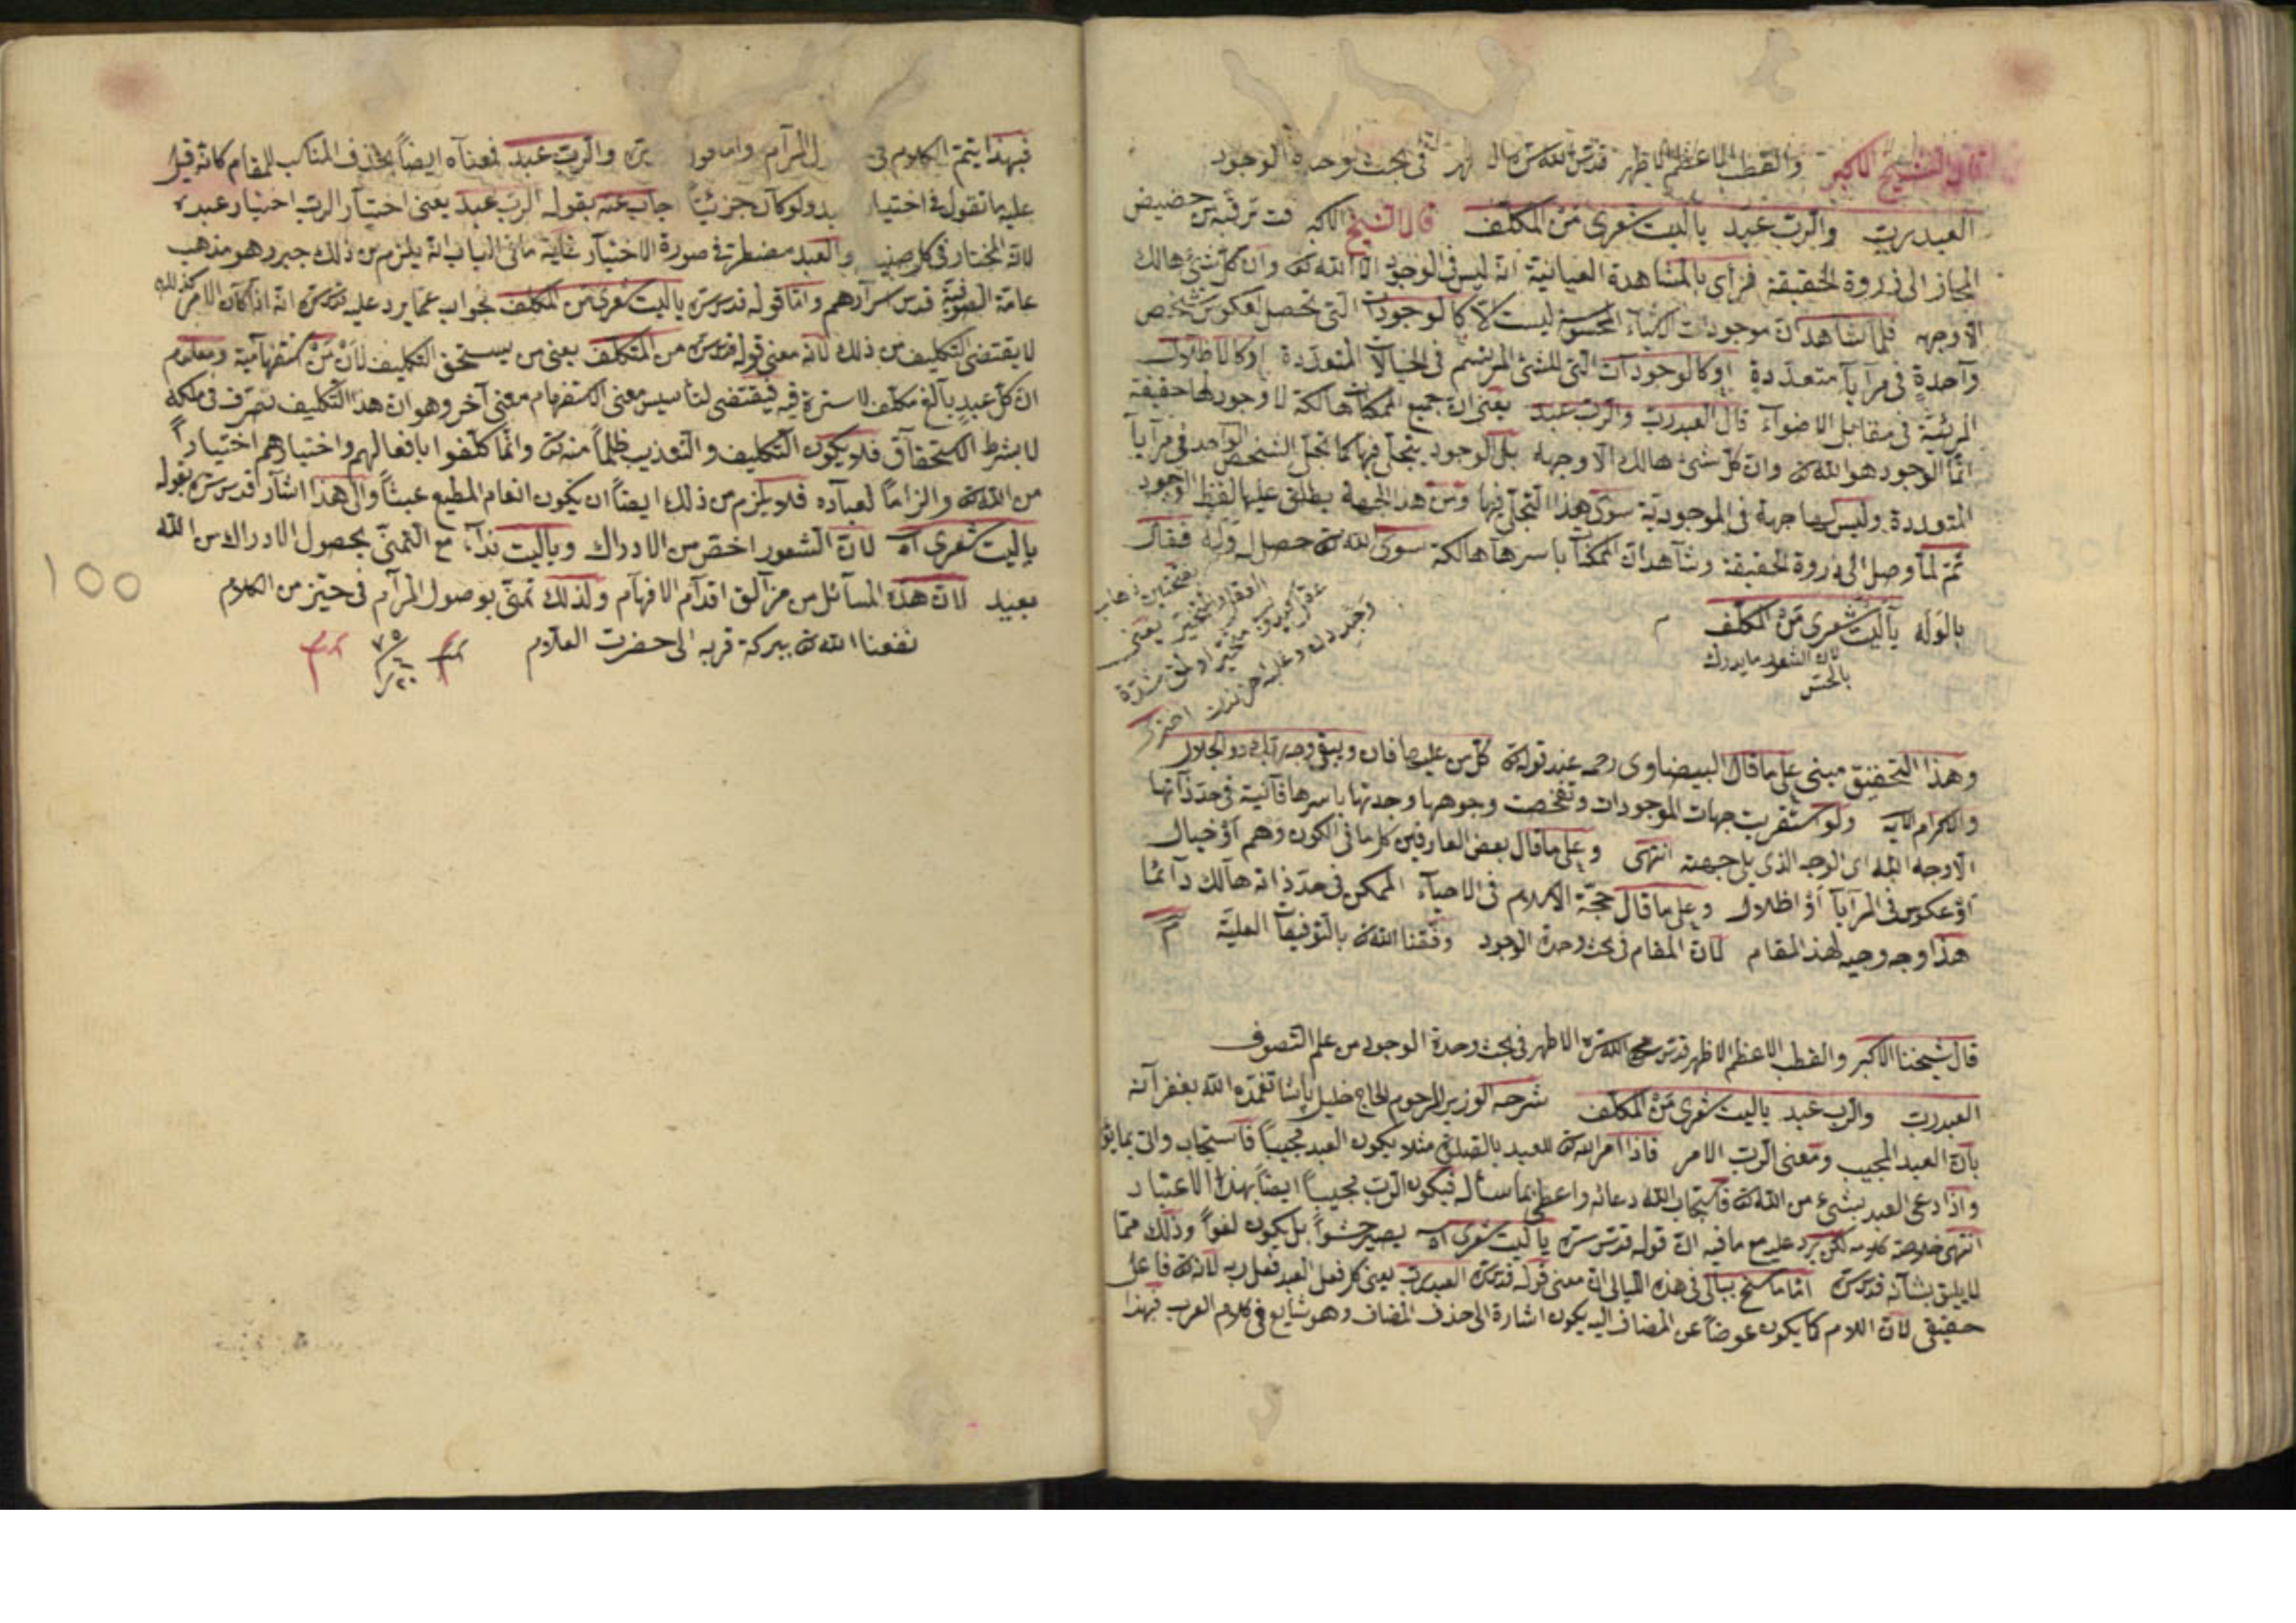 قال الشيخ الاكبر والقطب الاعظم الاظهر قدس الله سره فى بحث وحدة الوجود
العبد رب والرب عبد ياليت شعرى من المكلف قال الشيخ الاكبر حضيض
المجاز الى ذروة الحقيقة فرأى بالمشاهدة العيانية انه ليس فى الوجود الا الله تع وان كل شئ هالك
الا وجهه فلما شاهد ان موجودات الاشياء المحسوسة ليست الا كالوجودات التى تحصل لعكوس شخص
واحدة فى مرآيا متعددة او كالوجودآت التى للشئ المرتسم فى الخيالات المتعددة او كالاظلال
المرئية فى مقابل الاضواء قال العبد رب والرب عبد يعنى ان جميع الممكنات هالكة لا وجود لها حقيقة
انما الوجود هو الله تع وان كل شئ هالك الا وجهه بل الوجود يتجلى فيها كما تجلى الشخص الواحد فى مرآيا
المتعددة وليس لها جهة فى الموجودية سوى هذا التجلى فيها ومن هذا الجهة يطلق عليها لفظ الوجود
ثم لما وصل الى ذروة الحقيقة وشاهد ان الممكنات باسرها هالكة سوى الله تع حصل له وله فقال
بالوله ياليت شعرى من المكلف م
لان الشعور ما يدرك
بالحس
بفتحتين ذهاب
العقل والتحير يعنى
وهذا التحقيق مبنى على ما قال البيضاوى رحمه عند قوله تع كل من عليها فان ويبقى وجه ربك ذو الجلال
والاكرام الآية ولو استقريت جهات الموجودات وتفحصت وجوهها وجدتها باسرها فانية فى حد ذآتها
الا وجه الله اى الوجه الذى يلى جهته انتهى وعلى ما قال بعض العارفين كل ما فى الكون وهم او خيال
او عكوس فى المرآيا او اظلال وعلى ما قال حجة الاسلام فى الاحياء الممكن فى حد ذاته هالك دآئما
هذا وجه وجيه لهذ المقام لان المقام فى بحث وحدة الوجود وفقنا الله تع بالتوفيقات العلية م
قال شيخنا الاكبر والقطب الاعظم الاظهر قدس الله سره الاطهر فى بحث وحدة الوجود من علم التصوف
العبد رب والرب عبد ياليت شعرى من المكلف شرحه الوزير المرحوم الحاج خليل پاشا تغمده الله بغفرآنه
بان العبد المجيب ومعنى الرب الامر فاذا امر الله تع للعبد بالصلوة مثلا يكون العبد مجيبا فاستجاب واتى بما
واذا دعى العبد بشئ من الله تع فاستجاب الله دعائه واعطى بما سأله فيكون الرب مجيبا ايضا بهذا الاعتبار
انتهى خلاصة كلامه لكن يرد عليه مع ما فيه ان قوله قدس سره ياليت شعرى اه يصير حشوا بل يكون لغوا وذلك مما
لا يليق بشآنه قدس سره اما ما سنح ببالى فى هذه الليالى ان معنى قوله قدس سره العبد رب يعنى كل فعل العبد فعل ربه لانه تع فاعل
حقيقى لان اللام كما يكون عوضا عن المضاف اليه يكون اشارة الى حذف المضاف وهو شايع فى كلام العرب فبهذا
فبهذا يتم الكلام فى المرآم واما قوله والرب عبد فمعناه ايضا بحذف المناسب للمقام كانه قيل
عليه ما تقول فى اختيار ولو كان جزئيا جاب عنه بقوله الرب عبد يعنى اختيار الرب اختيار عبده
لانه المختار فى كل والعبد مضطر فى صورة الاختيار غاية ما فى الباب انه يلزم من ذلك جبر وهو مذهب
عامة الصوفية قدس سرآرهم واما قوله قدس سره ياليت شعرى من المكلف فجواب عما يرد عليه قدس سره انه اذا كان الامر كذلك
لا يقتضى التكليف من ذلك لانه معنى قوله قدس سره من المكلف يعنى من يستحق التكليف لان من استفهامية ومعلوم
ان كل عبد بالغ مكلف لا سترة فيه فيقتضى لتاسيس معنى الاستفهام معنى آخر وهو ان هذا التكليف تصرف فى ملكه
لا بشرط الاستحقاق فلا يكون التكليف والتعذيب ظلما منه تع وانما كلفوا بافعالهم واختيارهم اختيارا
من الله تع والزاما لعباده فلا يلزم من ذلك ايضا ان يكون انعام المطيع عبثا والى هذا اشآر قدس سره بقوله
ياليت شعرى اه لان الشعور اخص من الادراك وياليت ندآء مع التمنى بحصول الادراك من الله
بعيد لان هذه المسآئل من مزآلق اقدآم الافهآم ولذلك تمنى بوصول المرآم فى حيز من الكلام
نفعنا الله تع ببركة قربه الى حضرت العلام
100